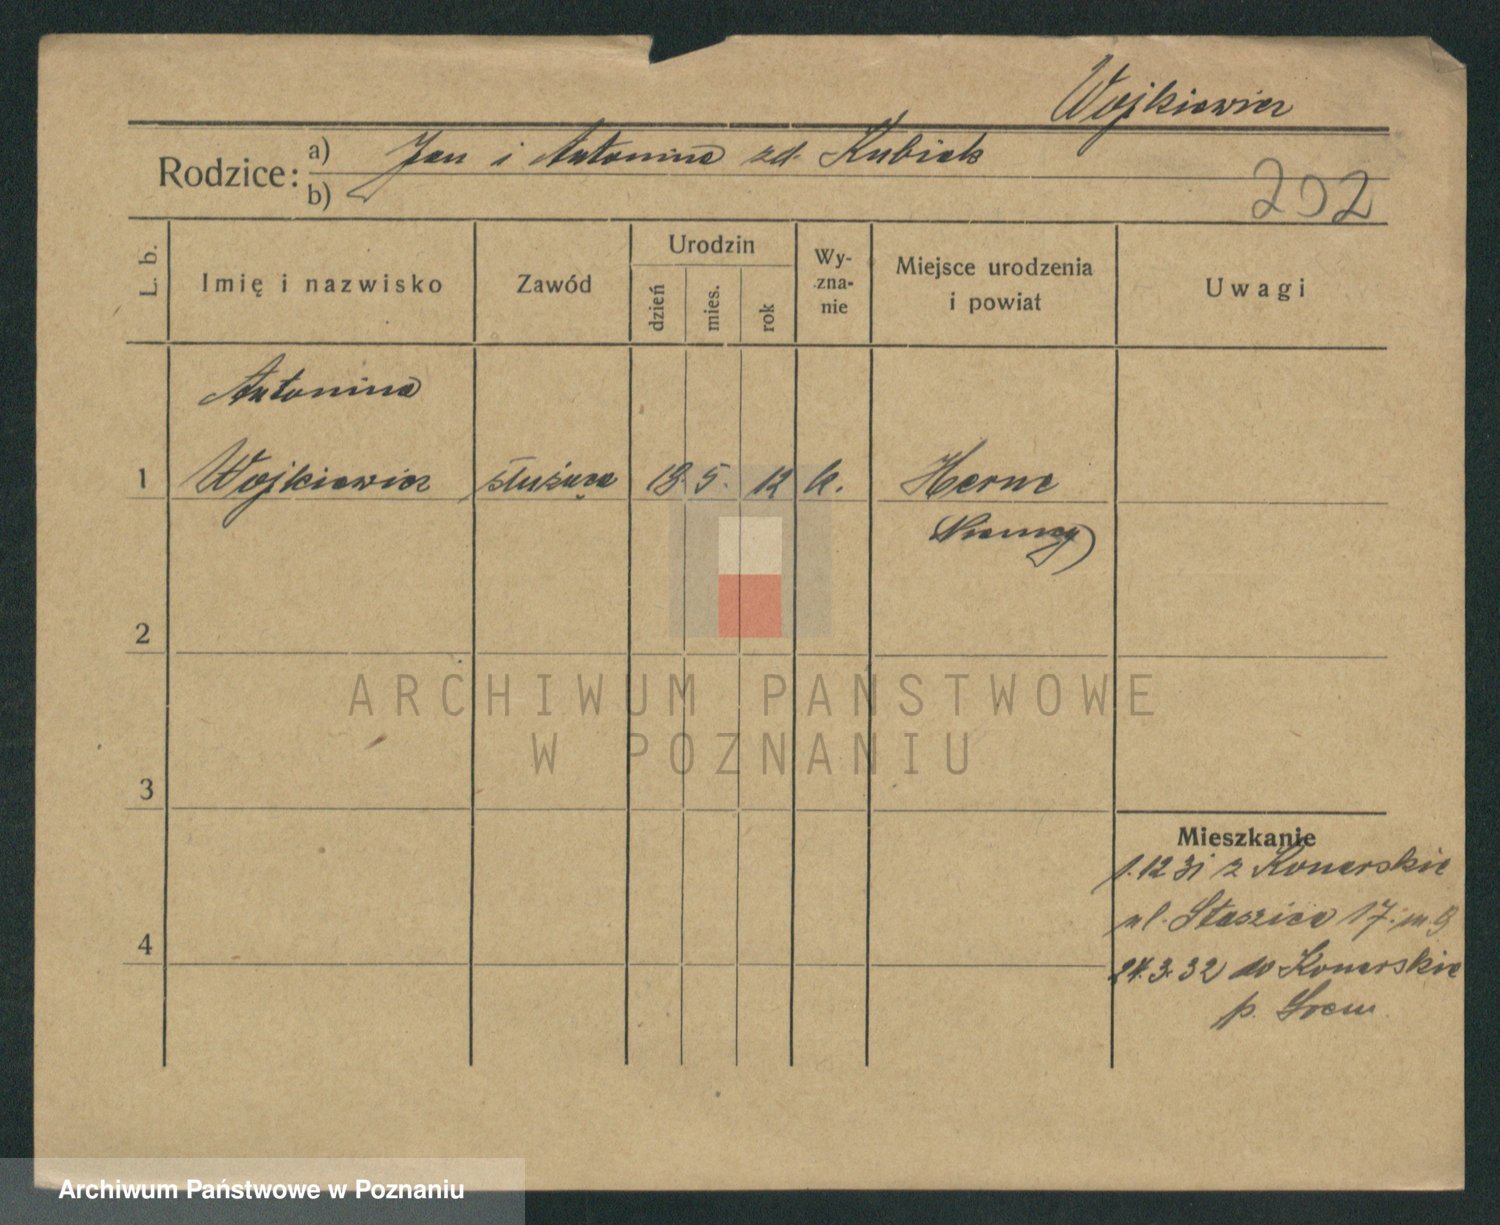 Wojkiewicz
Rodzice: a) Jan i Antonina zd. Kubiak
b)
202
L. b.
Imię i nazwisko
Zawód
Urodzin
dzień
mies.
rok
Wy-
zna-
nie
Miejsce urodzenia
i powiat
Uwagi
Antonina
1 Wojkiewicz służąca 18. 5. 12 k. Herne
Niemcy)
2
3
4
ARCHIWUM PAŃSTWOWE
W POZNANIU
Mieszkanie
1.12 31 z Konarskie
ul. Staszica 17. m. 9
24.3.32 do Konarskie
p. Śrem
Archiwum Państwowe w Poznaniu